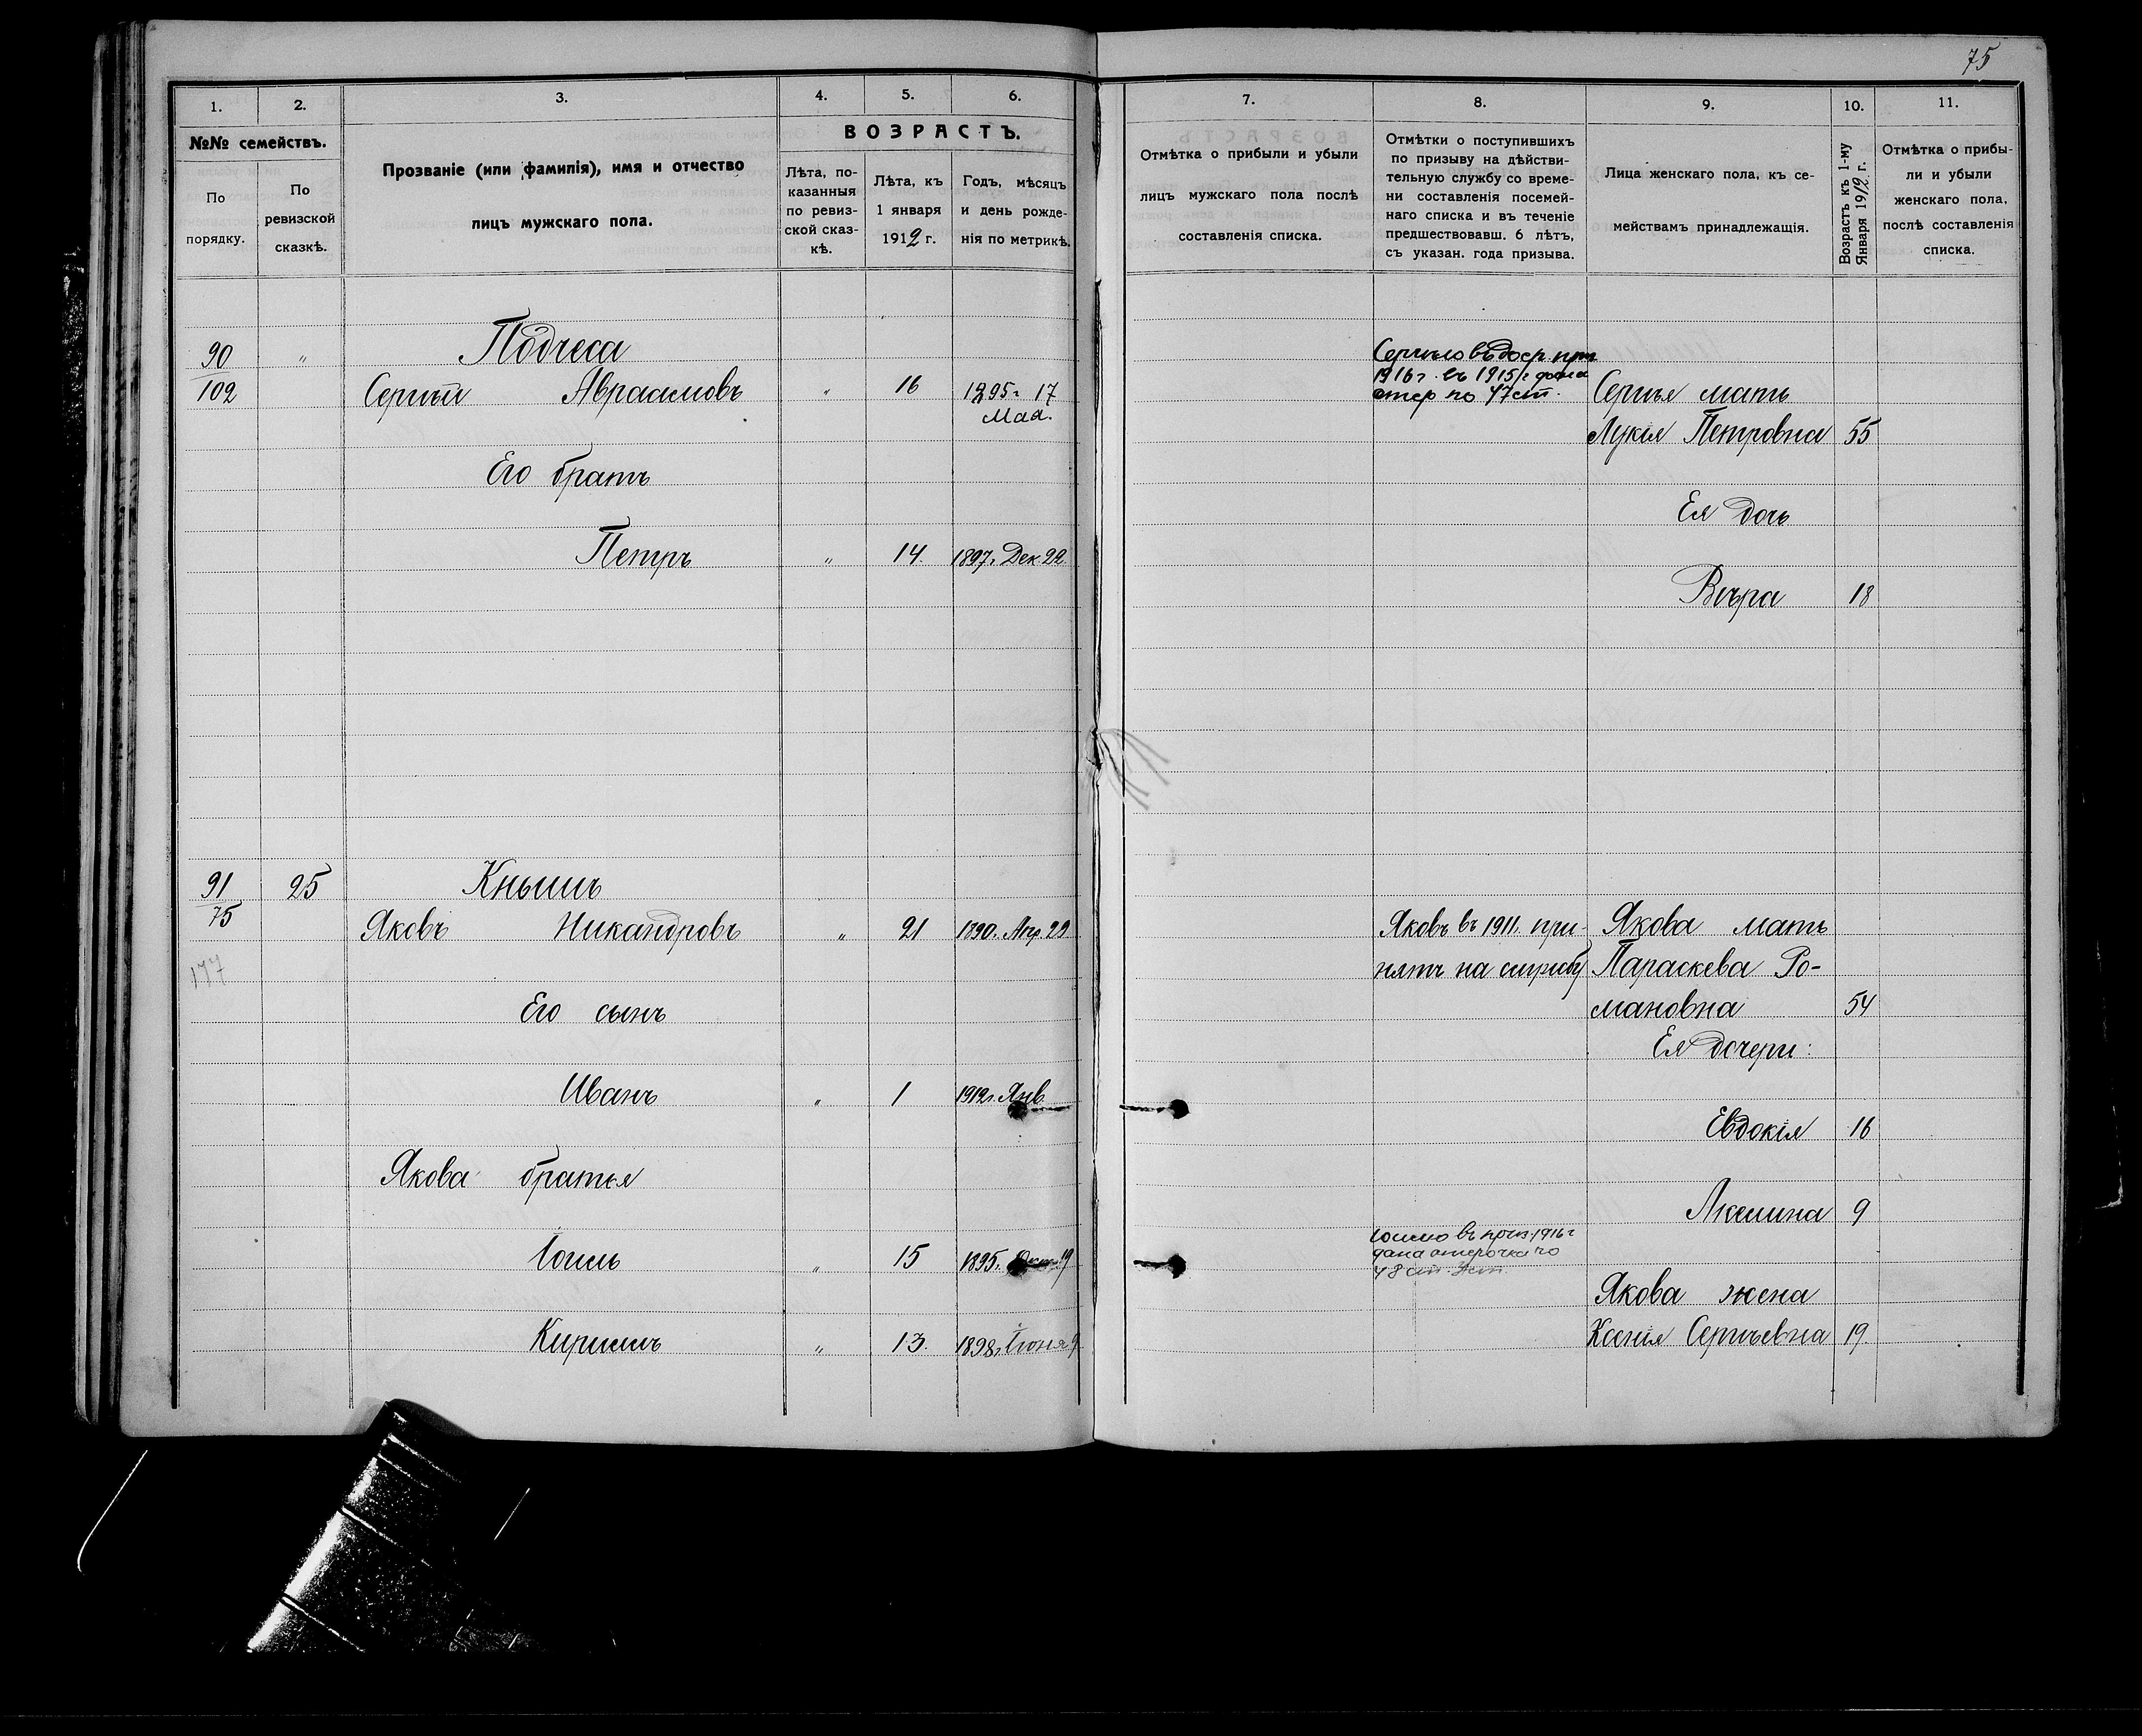 75
1.
2.
3.
4.
5.
6.
№№ семействъ.
По порядку.
По ревизской сказкѣ.
Прозваніе (или фамилія), имя и отчество
лицъ мужскаго пола.
ВОЗРАСТЪ.
Лѣта, по-
казанныя
по ревиз-
ской сказ-
кѣ.
Лѣта, къ
1 января
1912 г.
Годъ, мѣсяцъ
и день рожде-
нія по метрикѣ.
7.
8.
9.
10.
11.
Отмѣтка о прибыли и убыли
лицъ мужскаго пола послѣ
составленія списка.
Отмѣтки о поступившихъ
по призыву на дѣйстви-
тельную службу со време-
ни составленія посемей-
наго списка и въ теченіе
предшествовавш. 6 лѣтъ,
съ указан. года призыва.
Лица женскаго пола, къ се-
мействамъ принадлежащія.
Возрастъ къ 1-му
Января 1912 г.
Отмѣтка о прибы-
ли и убыли
женскаго пола,
послѣ составленія
списка.
90 "
102
Сергѣй Авраамовъ " 16 1895 г. 17
Мая.
Его братъ
Петръ " 14. 1897 г. Дек. 22.
1916 г. въ 1915 г. дана
отср по 47 ст.
Сергѣя мать
Лукія Петровна 55
Ея дочь
Вѣра 18
91 25 Кнышъ
75
Яковъ Никандровъ " 21 1890. Апр. 29
177
Его сынъ
Иванъ " 1 1912 г. Янв.
Якова братья
Іоиль " 15 1895. Окт. 19
Кириллъ " 13. 1898 г. Іюня 9
Яковъ въ 1911. при-
нятъ на службу
Іоилю въ приз. 1916 г
дана отсрочка по
48 ст.
Якова мать
Параскева Ро-
мановна 54
Ея дочери:
Евдокія 16
Акилина 9
Якова жена
Ксенія Сергѣевна 19.